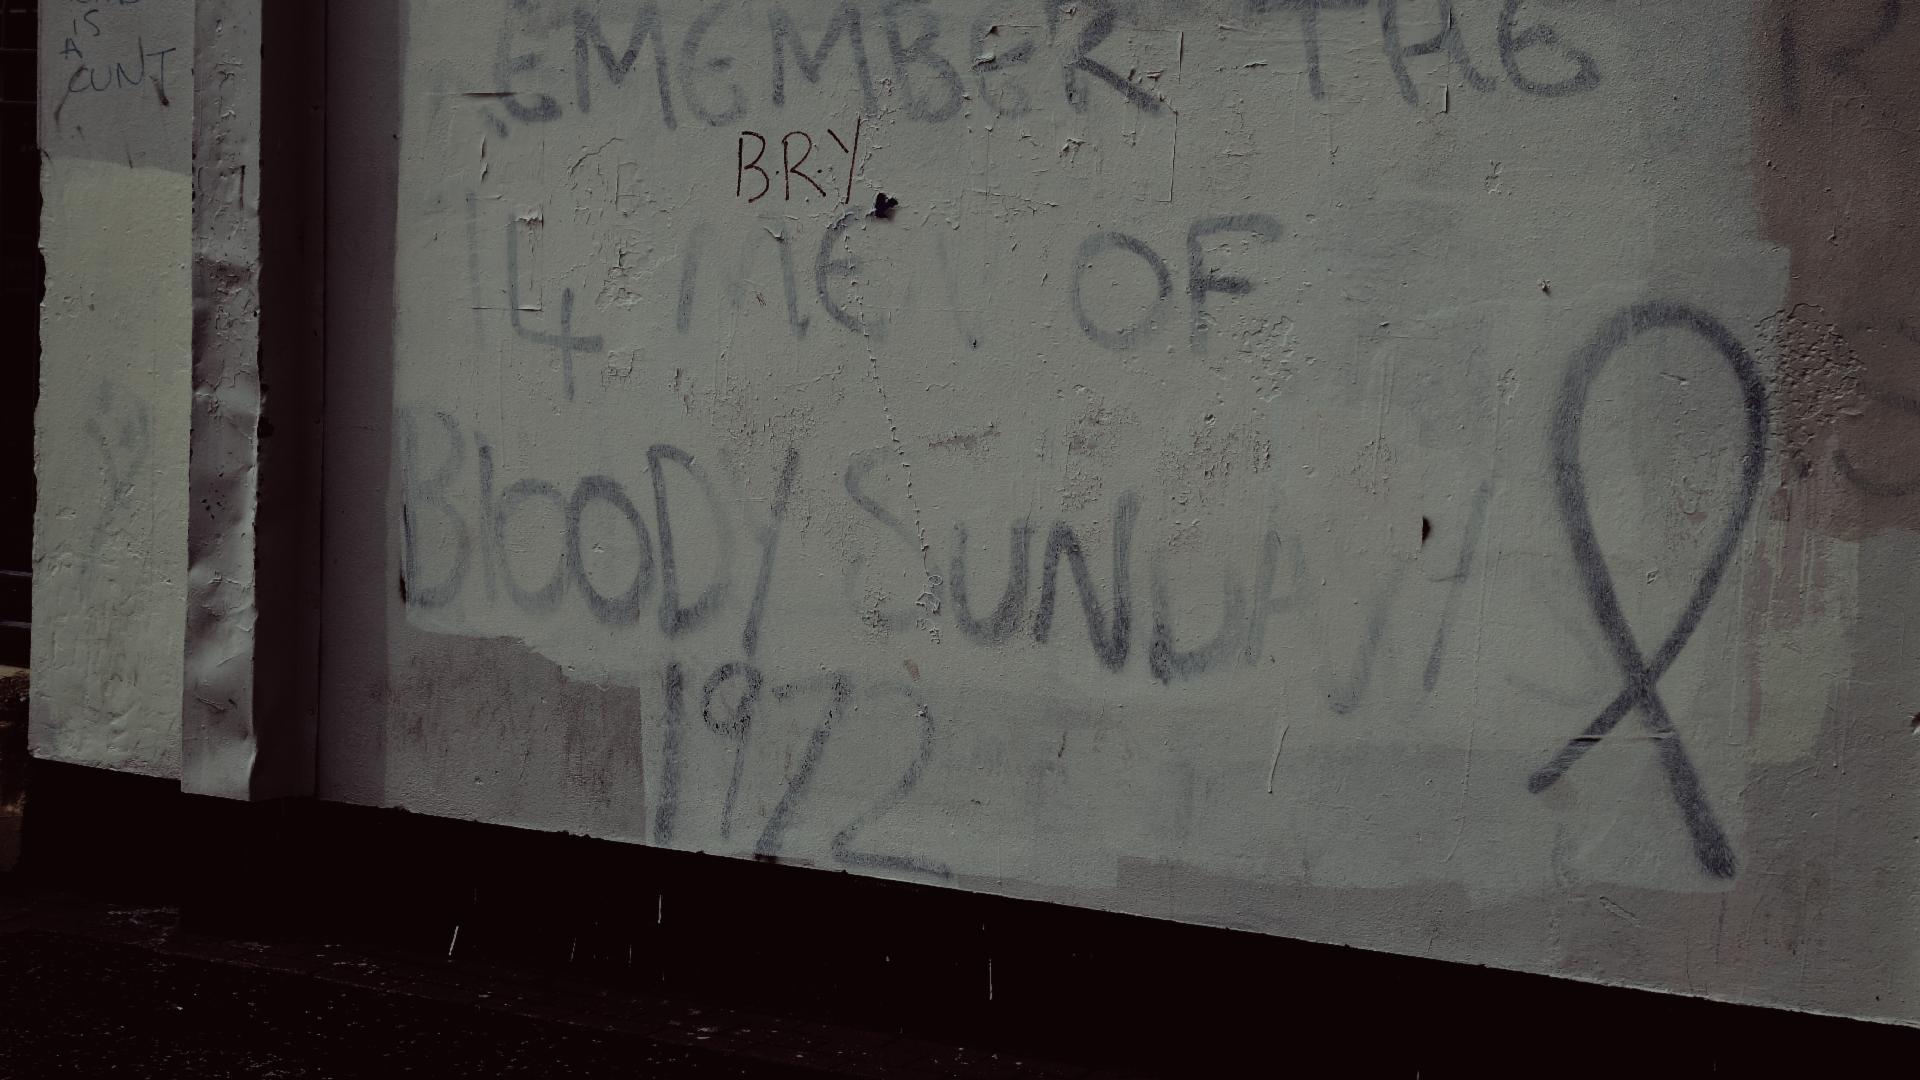 IS
A
CUNT
EMEMBER THE
BRY
14 MEN OF
BlOODY SUNDAY
1972